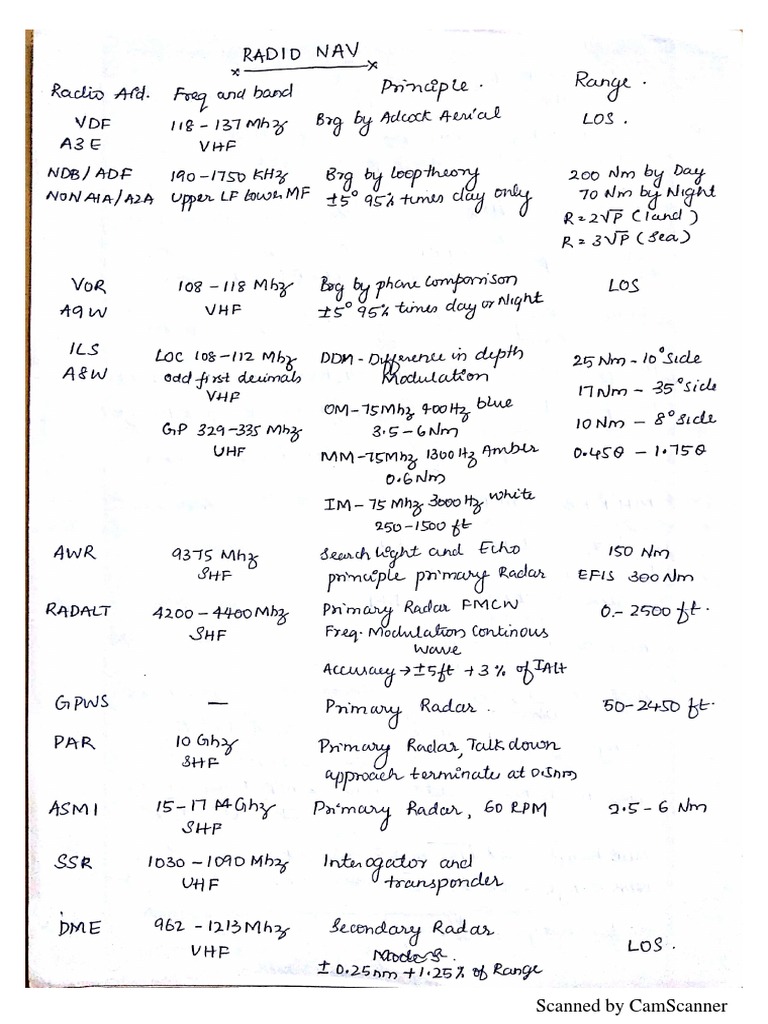 RADIO NAV
Radio Aid. Freq and band Principle. Range.
VDF 118-137 Mhz Brg by Adcock Aerial LOS.
A3E VHF
NDB/ADF 190-1750 KHz Brg by Loop theory 200 Nm by Day
NONA1A/A2A Upper LF Lower MF ±5° 95% times day only 70 Nm by Night
R = 2√P (land)
R = 3√P (Sea)
VOR 108-118 Mhz Brg by phase comparison LOS
A9W VHF ±5° 95% times day or Night
ILS LOC 108-112 Mhz DDM-Difference in depth 25 Nm-10° side
A8W odd first decimals Modulation
VHF 17 Nm-35° side
OM-75Mhz 400Hz blue 10 Nm-8° side
GP 329-335 Mhz 3.5-6Nm
UHF MM-75Mhz 1300Hz Amber 0.45θ - 1.75θ
0.6Nm
IM-75 Mhz 3000Hz White
250-1500 ft
AWR 9375 Mhz Search light and Echo 150 Nm
SHF principle primary Radar EFIS 300 Nm
RADALT 4200-4400Mhz Primary Radar FMCW 0.-2500 ft.
SHF Freq. Modulation Continous
Wave
Accuracy → ±5ft +3% of IAlt
GPWS — Primary Radar. 50-2450 ft.
PAR 10 Ghz Primary Radar, Talk down
SHF approach terminate at 0.5nm
ASMI 15-17 Ghz Primary Radar, 60 RPM 2.5-6 Nm
SHF
SSR 1030-1090 Mhz Interogator and
UHF transponder
DME 962-1213Mhz Secondary Radar
VHF LOS.
± 0.25nm +1.25% of Range
Scanned by CamScanner